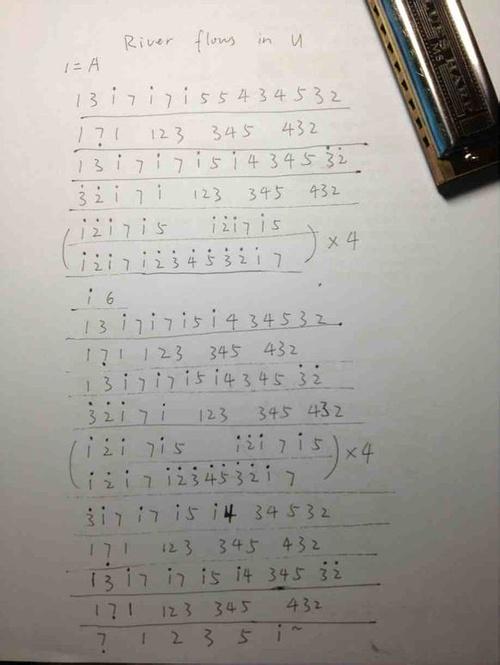 River flows in U
1=A
1 3 i 7 i 7 i 5 5 4 3 4 5 3 2
1 7̣ 1 1 2 3 3 4 5 4 3 2
1 3 i 7 i 7 i 5 i 4 3 4 5 3̇ 2̇
3̇ 2̇ i 7 i 1 2 3 3 4 5 4 3 2
( i 2̇ i 7 i 5 i 2̇ i 7 i 5
i 2̇ i 7 i 2̇ 3̇ 4̇ 5̇ 3̇ 2̇ i 7 ) ×4
i 6
1 3 i 7 i 7 i 5 i 4 3 4 5 3 2
1 7̣ 1 1 2 3 3 4 5 4 3 2
1 3 i 7 i 7 i 5 i 4 3 4 5 3̇ 2̇
3̇ 2̇ i 7 i 1 2 3 3 4 5 4 3 2
( i 2̇ i 7 i 5 i 2̇ i 7 i 5
i 2̇ i 7 i 2̇ 3̇ 4̇ 5̇ 3̇ 2̇ i 7 ) ×4
3̇ i 7 i 7 i 5 i 4 3 4 5 3 2
1 7 1 1 2 3 3 4 5 4 3 2
1 3 i 7 i 7 i 5 i 4 3 4 5 3̇ 2̇
1 7̣ 1 1 2 3 3 4 5 4 3 2
7̣ 1 2 3 5 i ~
BLUES HARP
MS